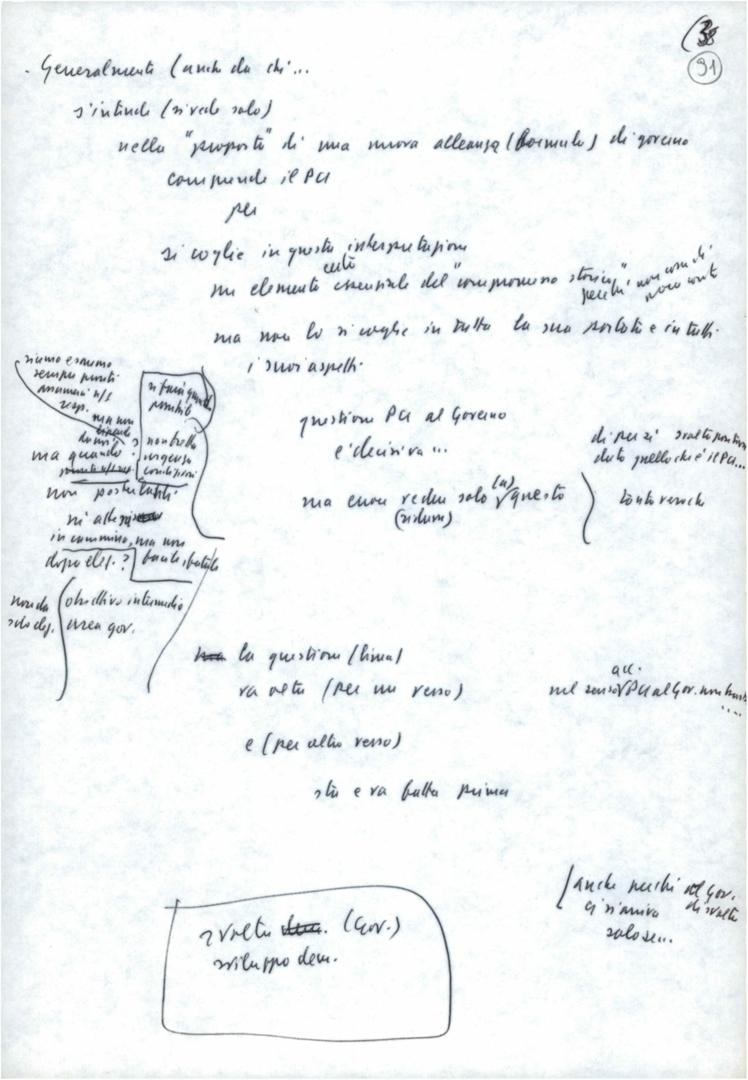 (38
91
- Generalmente (anche da chi...
s'intende (si vede solo)
nella "proposta" di una nuova alleanza (formula) di governo
comprende il PCI
per
si coglie in questa interpretazione
certo
un elemento essenziale del "compromesso storico"
perché, non così di
poco conto
ma non lo si coglie in tutta la sua portata e in tutti
i suoi aspetti
siamo e saremo
sempre pronti
assumerci n/s
resp.
ma non
si farà quando
possibile
questione PCI al Governo
è decisiva...
di per sé svolta positiva
dato quello che è il PCI...
ma quando?
non nelle
urgenza
condizioni
non possibilità
ma error vedere solo (a) questo
(ridurre)
tanto vero che
né
in cammino, ma non
dopo elez.?
non da
solo elez.
obiettivo intermedio
area gov.
la questione (linea)
va oltre (per un verso)
acc.
nel senso PCI al Gov. non basta
....
e (per altro verso)
sta e va fatta prima
(anche perché al Gov.
di svolta
ci si arriva
solo se...
svolta dem. (Gov.)
sviluppo dem.